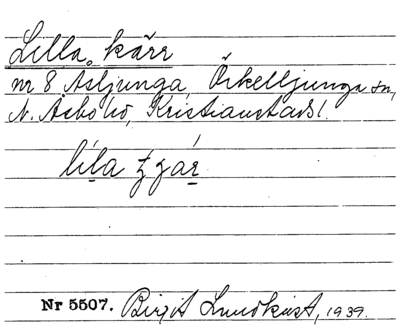 Lilla kärr
nr 8 Åsljunga, Örkelljunga sn,
N. Åsbo hd, Kristianstads l.
Nr 5507. Birgit Lundkvist, 1939.